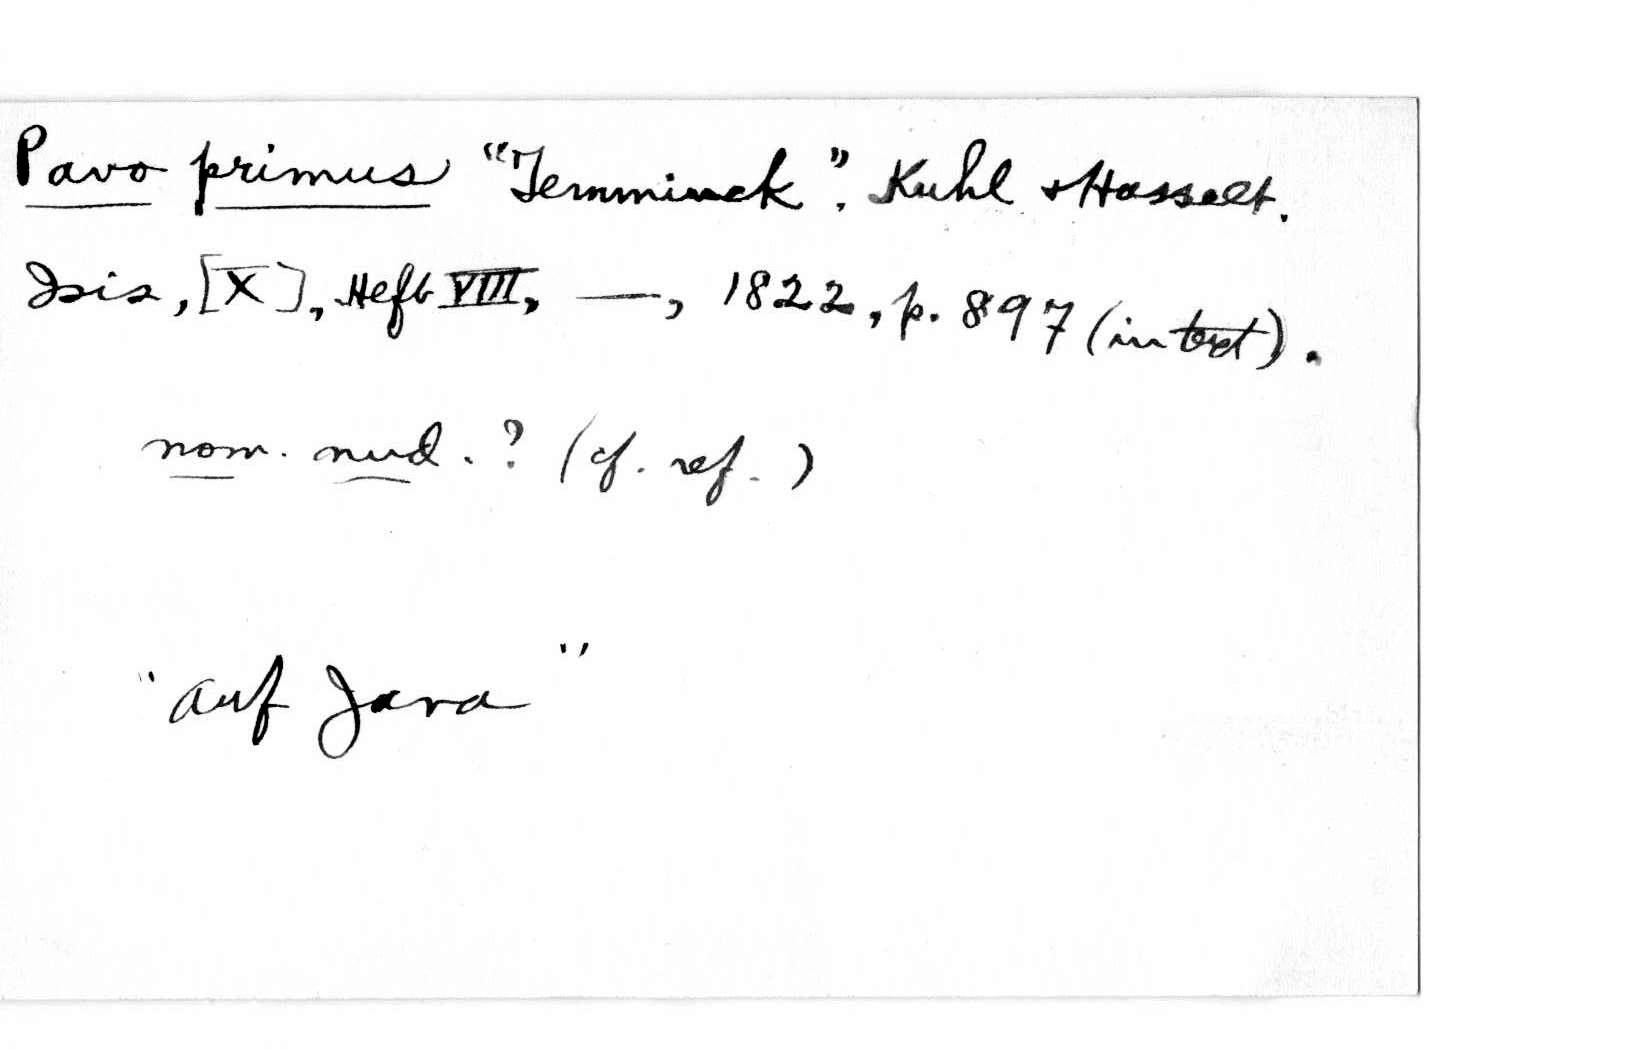 Pavo primus "Temminck". Kuhl + Hasselt.
Isis, [X], Heft VIII, —, 1822, p. 897 (in text).
nom. nud. ? (cf. ref.)
"auf Java"